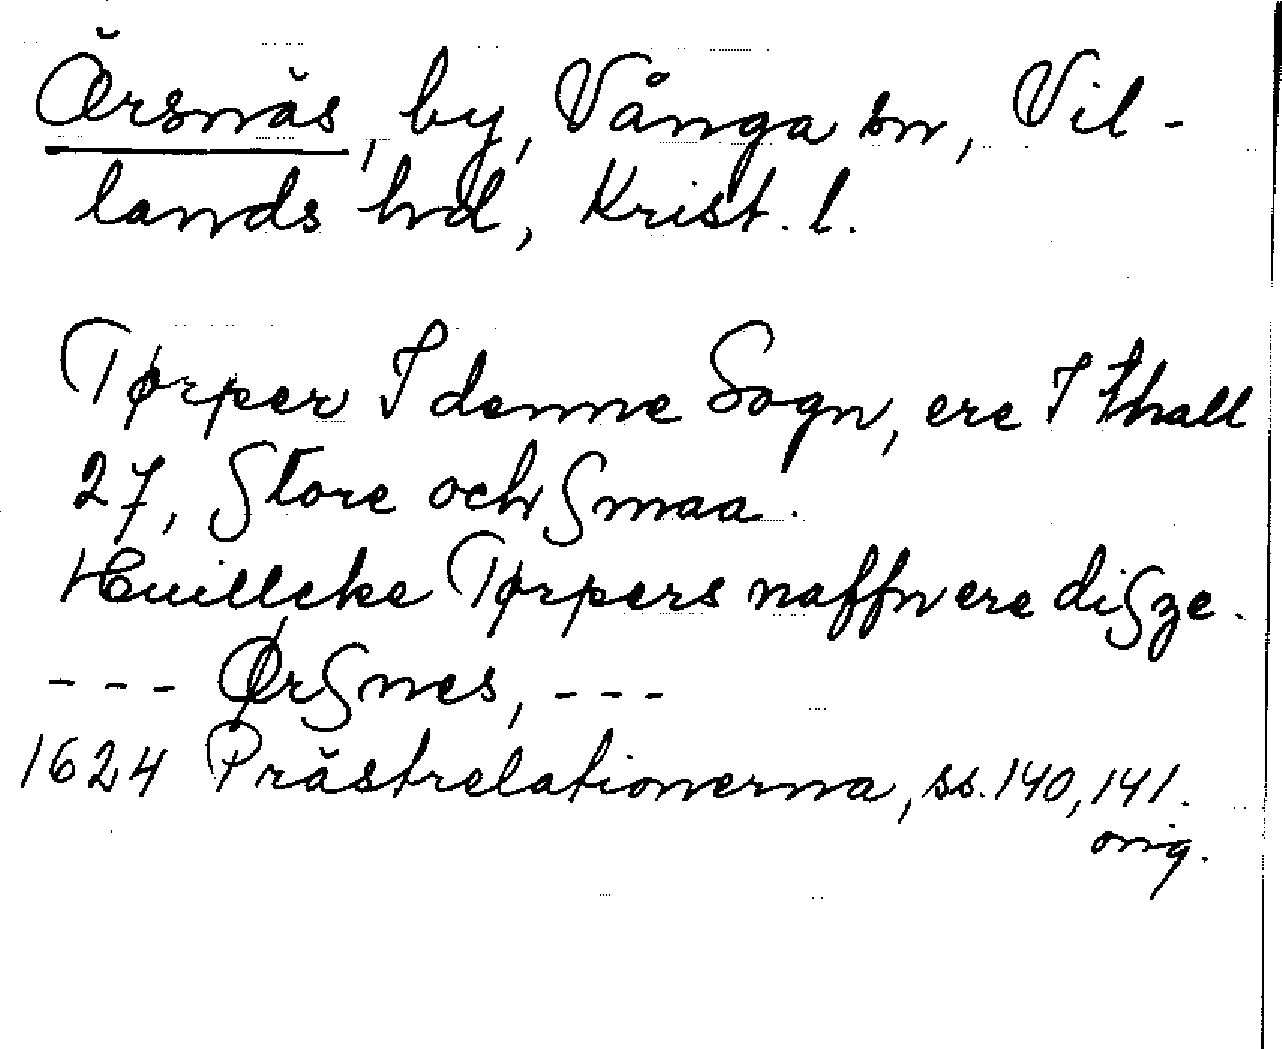 Örsnäs, by, Vånga sn, Vil-
lands hd, Krist. l.
Tørper I denne Sogn, ere I thall
27, Store och Smaa.
Huillcke Tørpers naffn ere diSze.
--- ØrSnes, ---
1624 Prästrelationerna, ss. 140, 141.
orig.